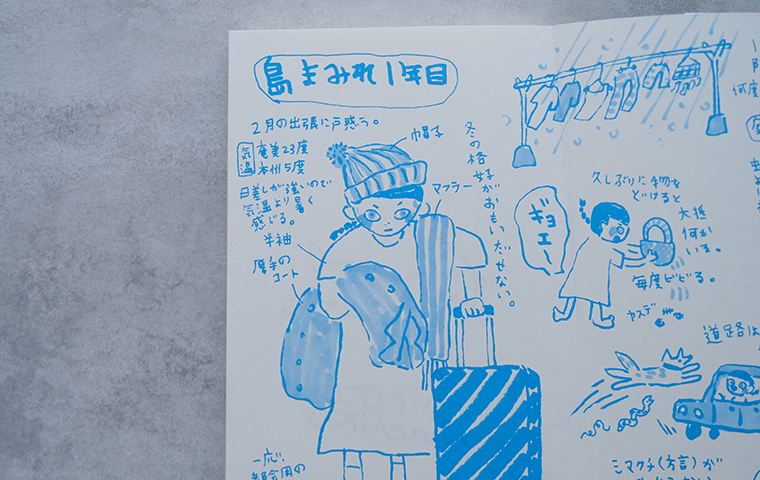 島まみれ1年目
2月の出張に戸惑う。
気温
奄美23度
本州5度
日差しが強いので
気温より暑く
感じる。
半袖
厚手の
コート
帽子
マフラー
冬の格
好が
おもいだせない。
一応、
ギョエー
久しぶりに物を
どけると
大抵
何か
いる。
毎度ビビる。
ヤスデ
道路は
シマグチ(方言)が
何度